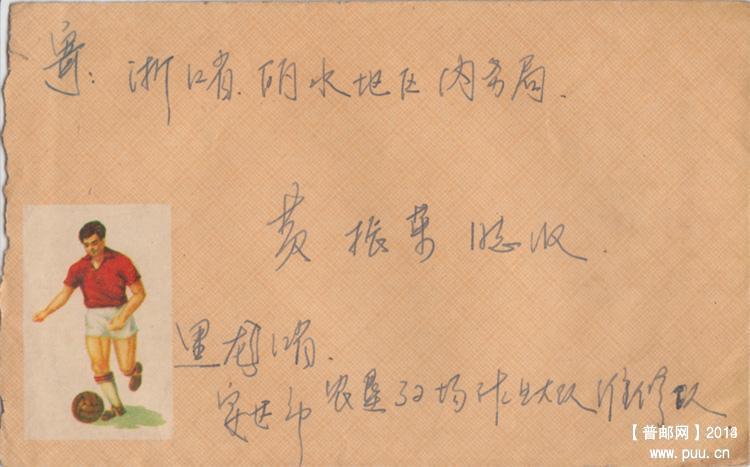 寄：浙江省.丽水地区内务局.
黄振华同志收.
黑龙江省.
农垦 场 大队 维修队
【普邮网】2013
www.puu.cn